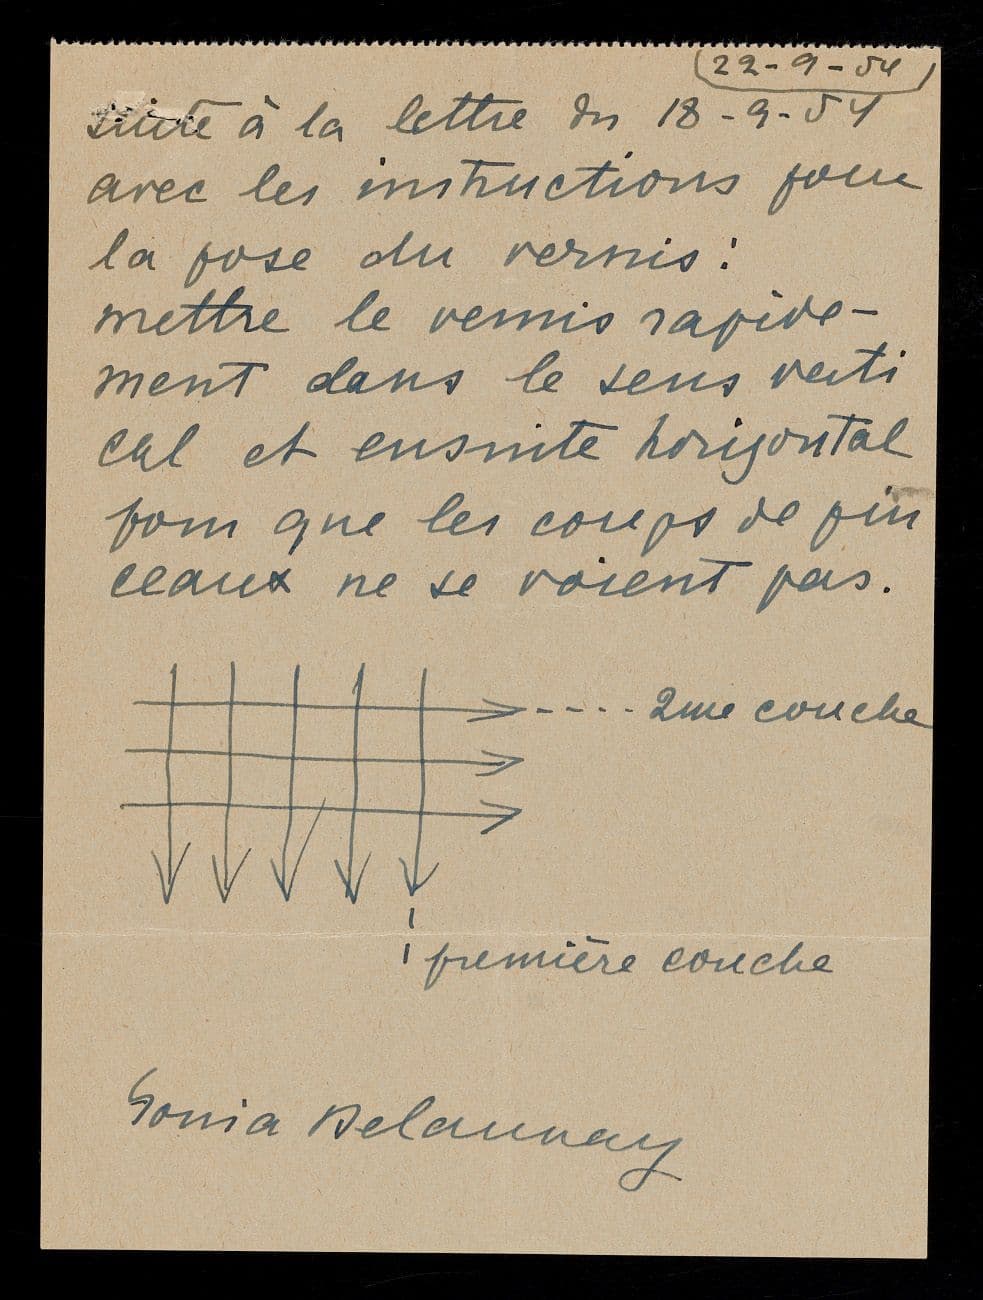 22-9-54
suite à la lettre du 18-9-54
avec les instructions pour
la pose du vernis:
mettre le vernis rapide-
ment dans le sens verti
cal et ensuite horizontal
pour que les coups de pin
ceaux ne se voient pas.
---- 2me couche
première couche
Sonia Delaunay